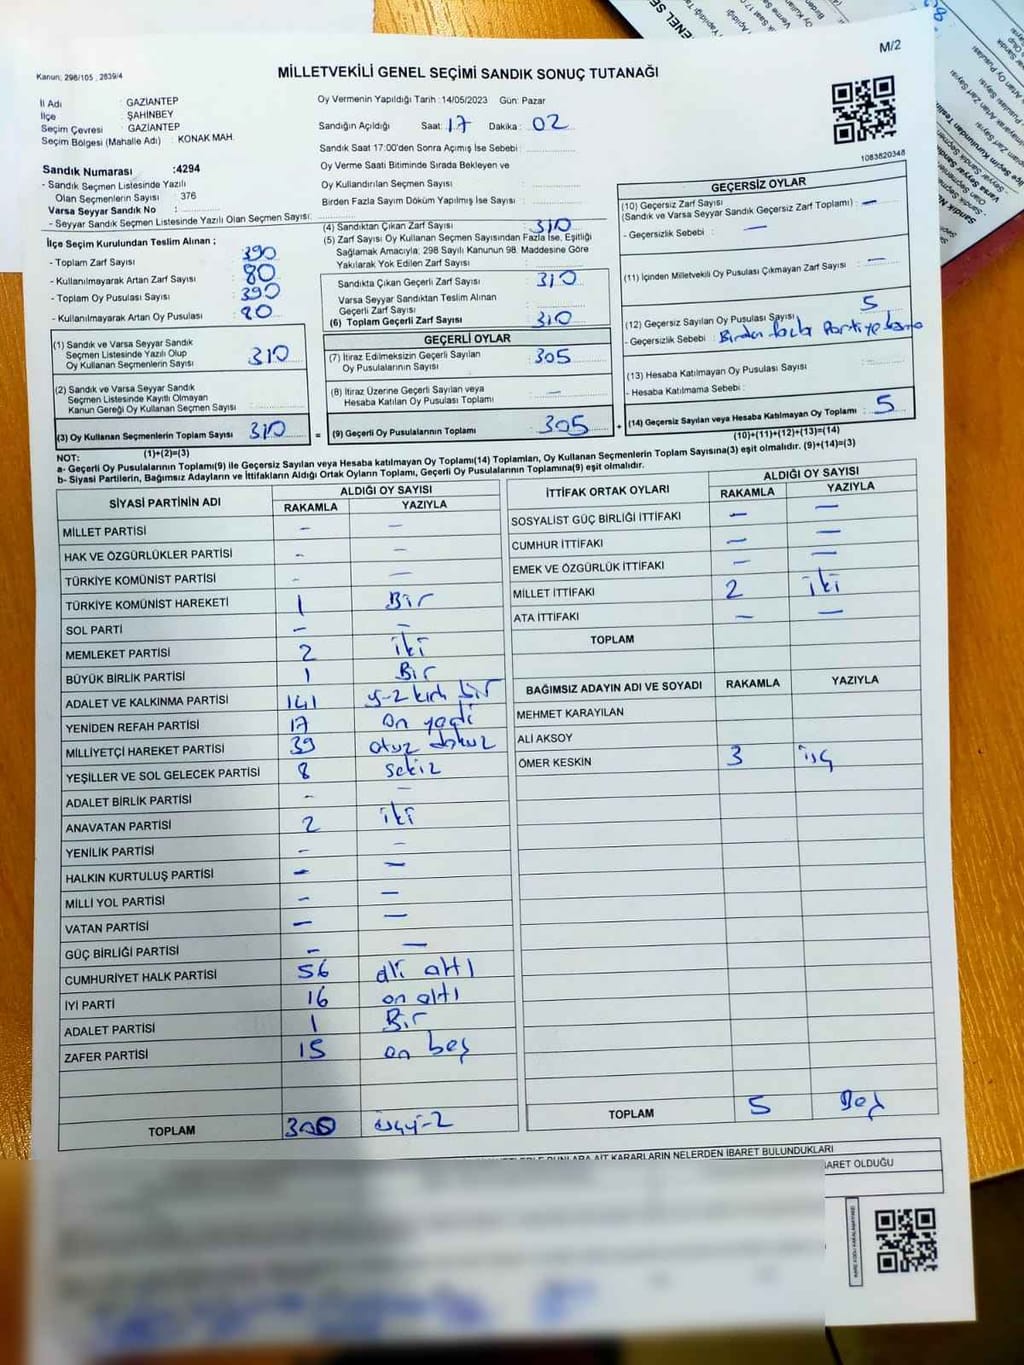 M/2
Kanun: 298/105 , 2839/4
MİLLETVEKİLİ GENEL SEÇİMİ SANDIK SONUÇ TUTANAĞI
İl Adı : GAZİANTEP
İlçe : ŞAHİNBEY
Seçim Çevresi : GAZİANTEP
Seçim Bölgesi (Mahalle Adı) : KONAK MAH.
Sandık Numarası :4294
- Sandık Seçmen Listesinde Yazılı
Olan Seçmenlerin Sayısı : 376
Varsa Seyyar Sandık No :
- Seyyar Sandık Seçmen Listesinde Yazılı Olan Seçmen Sayısı:
Oy Vermenin Yapıldığı Tarih :14/05/2023 Gün: Pazar
Sandığın Açıldığı Saat: 17 Dakika: 02
Sandık Saat 17:00'den Sonra Açımış İse Sebebi :
Oy Verme Saati Bitiminde Sırada Bekleyen ve
Oy Kullandırılan Seçmen Sayısı :
Birden Fazla Sayım Döküm Yapılmış İse Sayısı :
1083820348
İlçe Seçim Kurulundan Teslim Alınan ;
- Toplam Zarf Sayısı : 390
- Kullanılmayarak Artan Zarf Sayısı : 80
- Toplam Oy Pusulası Sayısı : 390
- Kullanılmayarak Artan Oy Pusulası : 80
(1) Sandık ve Varsa Seyyar Sandık
Seçmen Listesinde Yazılı Olup
Oy Kullanan Seçmenlerin Sayısı : 310
(2) Sandık ve Varsa Seyyar Sandık
Seçmen Listesinde Kayıtlı Olmayan
Kanun Gereği Oy Kullanan Seçmen Sayısı :
(3) Oy Kullanan Seçmenlerin Toplam Sayısı 310
(1)+(2)=(3)
(4) Sandıktan Çıkan Zarf Sayısı : 310
(5) Zarf Sayısı Oy Kullanan Seçmen Sayısından Fazla İse, Eşitliği
Sağlamak Amacıyla; 298 Sayılı Kanunun 98. Maddesine Göre
Yakılarak Yok Edilen Zarf Sayısı :
Sandıkta Çıkan Geçerli Zarf Sayısı : 310
Varsa Seyyar Sandıktan Teslim Alınan
Geçerli Zarf Sayısı :
(6) Toplam Geçerli Zarf Sayısı : 310
GEÇERLİ OYLAR
(7) İtiraz Edilmeksizin Geçerli Sayılan
Oy Pusulalarının Sayısı : 305
(8) İtiraz Üzerine Geçerli Sayılan veya
Hesaba Katılan Oy Pusulası Toplamı : —
= (9) Geçerli Oy Pusulalarının Toplamı : 305 +
GEÇERSİZ OYLAR
(10) Geçersiz Zarf Sayısı
(Sandık ve Varsa Seyyar Sandık Geçersiz Zarf Toplamı) : —
- Geçersizlik Sebebi : —
(11) İçinden Milletvekili Oy Pusulası Çıkmayan Zarf Sayısı : —
(12) Geçersiz Sayılan Oy Pusulası Sayısı : 5
- Geçersizlik Sebebi : Birden fazla Partiye
(13) Hesaba Katılmayan Oy Pusulası Sayısı :
- Hesaba Katılmama Sebebi :
(14) Geçersiz Sayılan veya Hesaba Katılmayan Oy Toplamı : 5
(10)+(11)+(12)+(13)=(14)
NOT:
a- Geçerli Oy Pusulalarının Toplamı(9) ile Geçersiz Sayılan veya Hesaba katılmayan Oy Toplamı(14) Toplamları, Oy Kullanan Seçmenlerin Toplam Sayısına(3) eşit olmalıdır. (9)+(14)=(3)
b- Siyasi Partilerin, Bağımsız Adayların ve İttifakların Aldığı Ortak Oyların Toplamı, Geçerli Oy Pusulalarının Toplamına(9) eşit olmalıdır.
SİYASİ PARTİNİN ADI ALDIĞI OY SAYISI
RAKAMLA YAZIYLA
MİLLET PARTİSİ — —
HAK VE ÖZGÜRLÜKLER PARTİSİ - —
TÜRKİYE KOMÜNİST PARTİSİ - —
TÜRKİYE KOMÜNİST HAREKETİ 1 Bir
SOL PARTİ — —
MEMLEKET PARTİSİ 2 iki
BÜYÜK BİRLİK PARTİSİ 1 Bir
ADALET VE KALKINMA PARTİSİ 141 y-z kırk bir
YENİDEN REFAH PARTİSİ 17 on yedi
MİLLİYETÇİ HAREKET PARTİSİ 39 otuz dokuz
YEŞİLLER VE SOL GELECEK PARTİSİ 8 sekiz
ADALET BİRLİK PARTİSİ - —
ANAVATAN PARTİSİ 2 iki
YENİLİK PARTİSİ - —
HALKIN KURTULUŞ PARTİSİ — —
MİLLİ YOL PARTİSİ - —
VATAN PARTİSİ — —
GÜÇ BİRLİĞİ PARTİSİ - —
CUMHURİYET HALK PARTİSİ 56 elli altı
İYİ PARTİ 16 on altı
ADALET PARTİSİ 1 Bir
ZAFER PARTİSİ 15 on beş
TOPLAM 300 üçy-z
İTTİFAK ORTAK OYLARI ALDIĞI OY SAYISI
RAKAMLA YAZIYLA
SOSYALİST GÜÇ BİRLİĞİ İTTİFAKI — —
CUMHUR İTTİFAKI — —
EMEK VE ÖZGÜRLÜK İTTİFAKI — —
MİLLET İTTİFAKI 2 iki
ATA İTTİFAKI — —
TOPLAM
BAĞIMSIZ ADAYIN ADI VE SOYADI RAKAMLA YAZIYLA
MEHMET KARAYILAN
ALİ AKSOY
ÖMER KESKİN 3 üç
TOPLAM 5 Beş
AİT KARARLARIN NELERDEN İBARET BULUNDUKLARI
BARET OLDUĞU